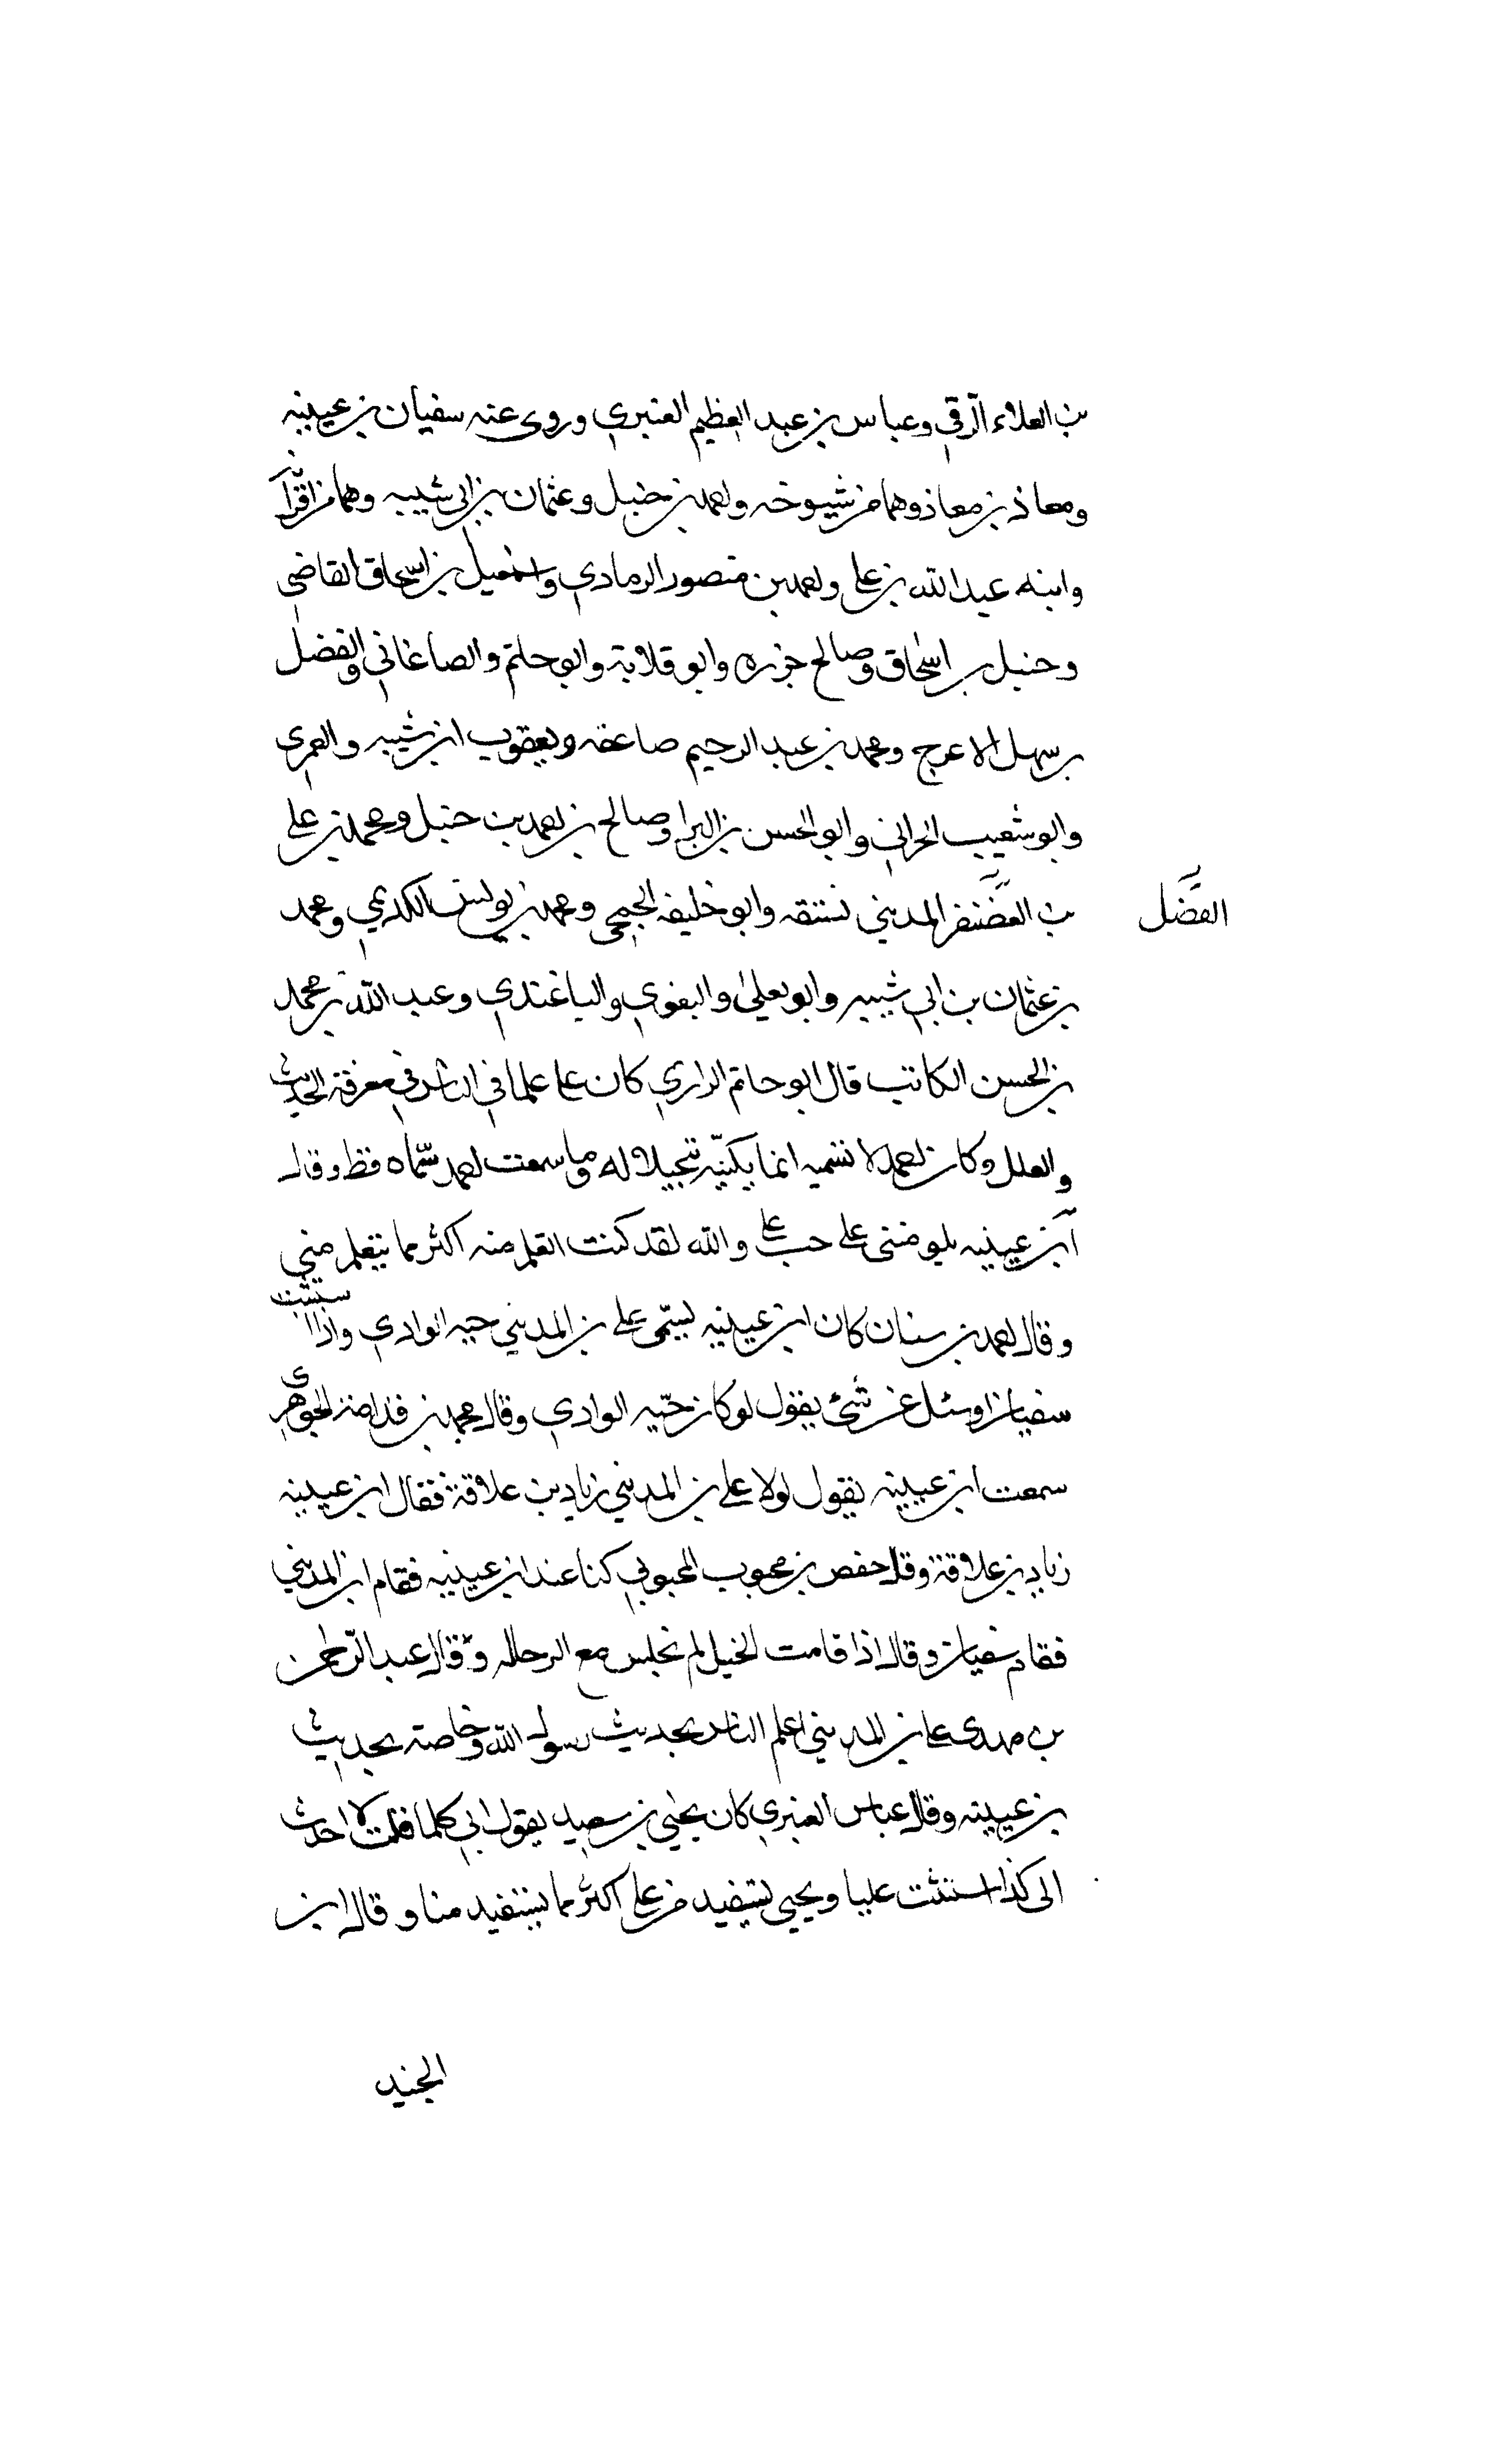 بن العلاء الرقي وعباس بن عبد العظيم العنبري وروى عنه سفيان بن عيينه
ومعاذ بن معاذ وهما من شيوخه واحمد بن حنبل وعثمان بن ابي شيبه وهما من اقرانه
وابنه عبد الله بن علي واحمد بن منصور الرمادي واسمعيل بن اسحاق القاضي
وحنبل بن اسحاق وصالح جزره وابو قلابة وابو حاتم والصاغاني والفضل
بن سهل الاعرج ومحمد بن عبد الرحيم صاعقه ويعقوب ابن شيبه والعمري
وابو شعيب الحراني وابو الحسن بن البراء وصالح بن احمد بن حنبل ومحمد بن علي
بن الغضنفر المديني فستقه وابو خليفه الجمحي ومحمد بن يونس الكديمي ومحمد
الفضل
بن عثمان بن ابي شيبه وابو يعلى والبغوي والباغندي وعبد الله بن محمد
بن الحسن الكاتب قال ابو حاتم الرازي كان علي علما في الناس في معرفة الحديث
والعلل وكان احمد لا يسميه انما يكنيه تبجيلا له وما سمعت احمد سماه قط وقال
ابن عيينه يلومنني على حب علي والله لقد كنت اتعلم منه اكثر مما يتعلم مني
وقال احمد بن سنان كان ابن عيينه يسمى علي بن المديني حيه الوادي واذا استثبت
سفيان او سئل عن شئ يقول لو كان حيه الوادي وقال محمد بن قدامة الجوهري
سمعت ابن عيينه يقول لولا علي بن المديني زياد بن علاقة فقال ابن عيينه
زياد بن علاقة وقال حفص بن محبوب المحبوبي كنا عند ابن عيينه فقام ابن المديني
فقام سفيان وقال اذا قامت الخيل لم نجلس مع الرجاله وقال عبد الرحمن
بن مهدى علي بن المديني اعلم الناس بحديث رسول الله وخاصة بحديث
بن عيينه وقال عباس العنبري كان يحيى بن سعيد يقول اني كلما قلت لا احدث
الى كذا استثنيت عليا ويحيى يستفيد من علي اكثر مما يستفيد منا وقال ابن
الجنيد